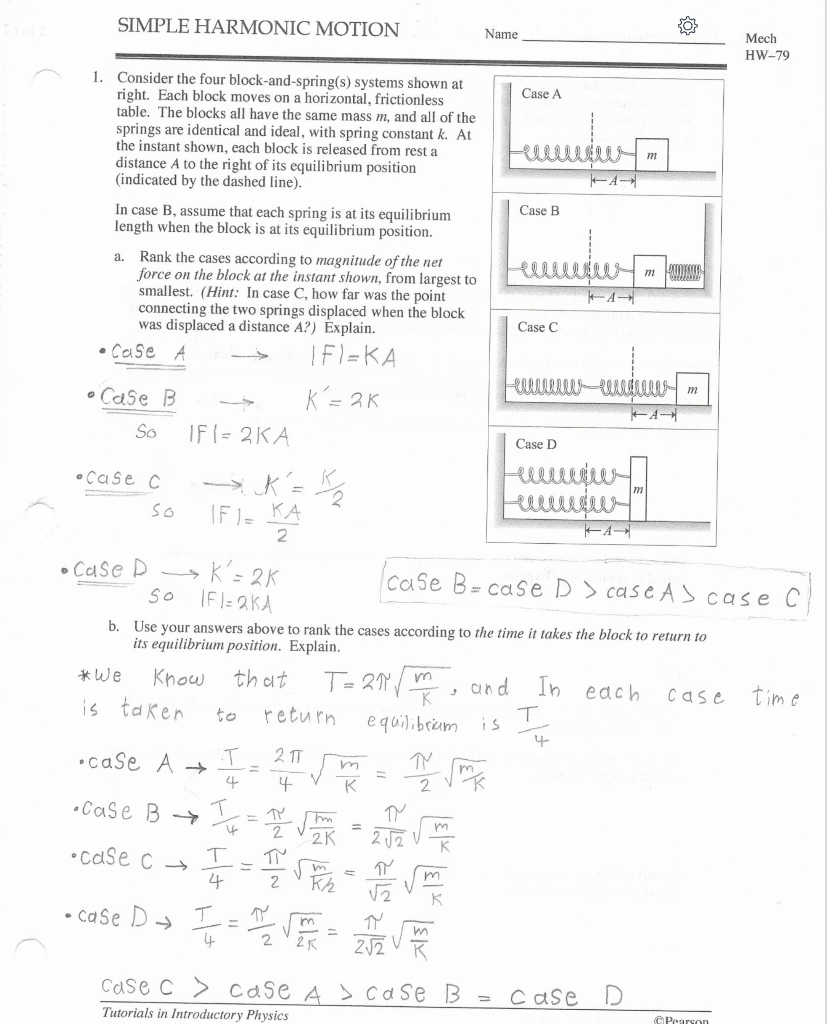 1 of 2
SIMPLE HARMONIC MOTION
Name
Mech
HW–79
1. Consider the four block-and-spring(s) systems shown at
right. Each block moves on a horizontal, frictionless
table. The blocks all have the same mass m, and all of the
springs are identical and ideal, with spring constant k. At
the instant shown, each block is released from rest a
distance A to the right of its equilibrium position
(indicated by the dashed line).
In case B, assume that each spring is at its equilibrium
length when the block is at its equilibrium position.
a. Rank the cases according to magnitude of the net
force on the block at the instant shown, from largest to
smallest. (Hint: In case C, how far was the point
connecting the two springs displaced when the block
was displaced a distance A?) Explain.
Case A
m
A
Case B
m
A
Case C
m
A
Case D
m
A
• Case A → |F|=KA
• Case B → K'= 2K
So |F|= 2KA
• Case C → K'= K/2
So |F|= KA/2
• Case D → K'= 2K
So |F|=2KA
case B = case D > case A > case C
b. Use your answers above to rank the cases according to the time it takes the block to return to
its equilibrium position. Explain.
*We Know that T= 2π√(m/K), and In each case time
is taken to return equilibrium is T/4
• case A → T/4 = 2π/4 √(m/K) = π/2 √(m/K)
• Case B → T/4 = π/2 √(m/2K) = π/2√2 √(m/K)
• case C → T/4 = π/2 √(m/K/2) = π/√2 √(m/K)
• case D → T/4 = π/2 √(m/2K) = π/2√2 √(m/K)
Case C > case A > case B = case D
Tutorials in Introductory Physics
©Pearson